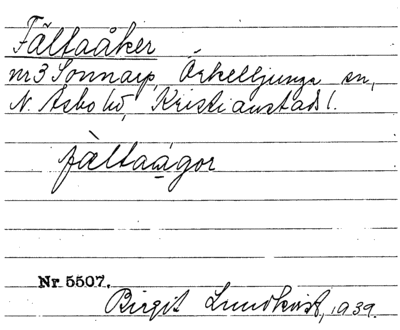 Fältaåker
nr 3 Sonnarp, Örkelljunga sn,
N. Åsbo hd, Kristianstads l.
fàltaágor
Nr 5507.
Birgit Lundkvist, 1939.